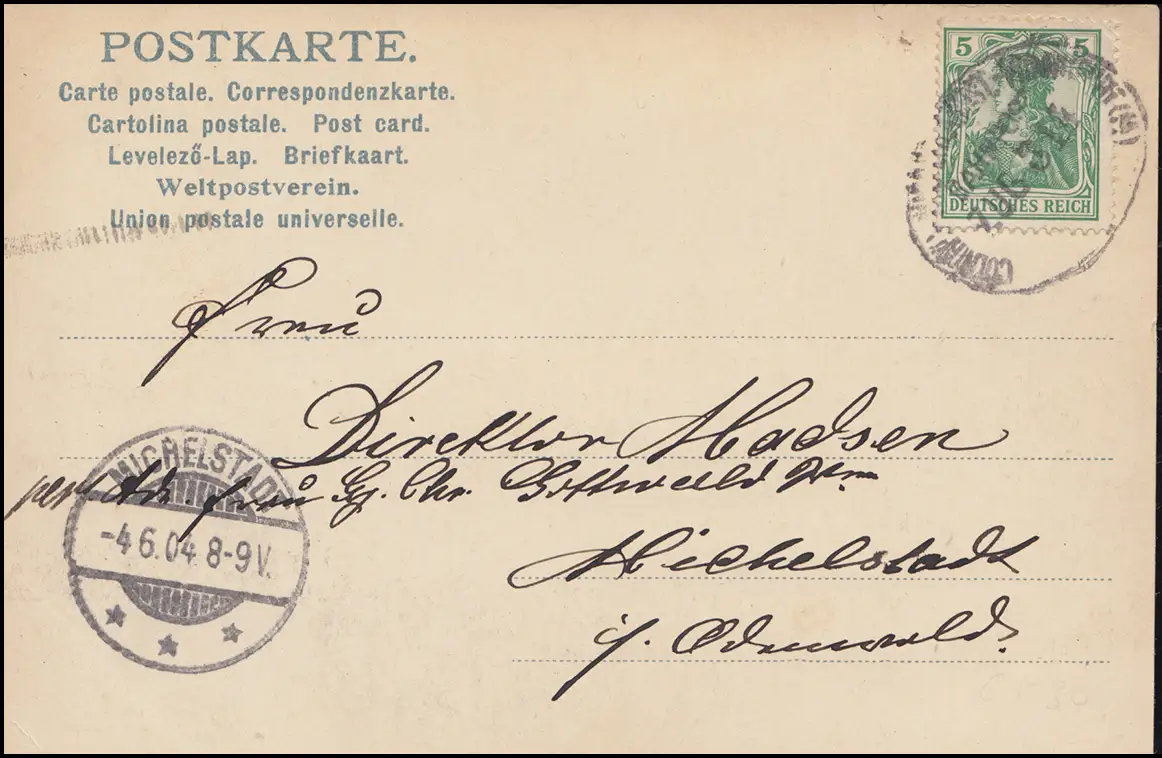 POSTKARTE.
Carte postale. Correspondenzkarte.
Cartolina postale. Post card.
Levelező-Lap. Briefkaart.
Weltpostverein.
Union postale universelle.
5 5
DEUTSCHES REICH
BAHNPOST
ZUG
Frau
Direktor Madsen
Adr. Frau Chr. Gottwald Wm
Michelstadt
i/. Odenwald.
MICHELSTADT
-4 6.04 8-9 V.